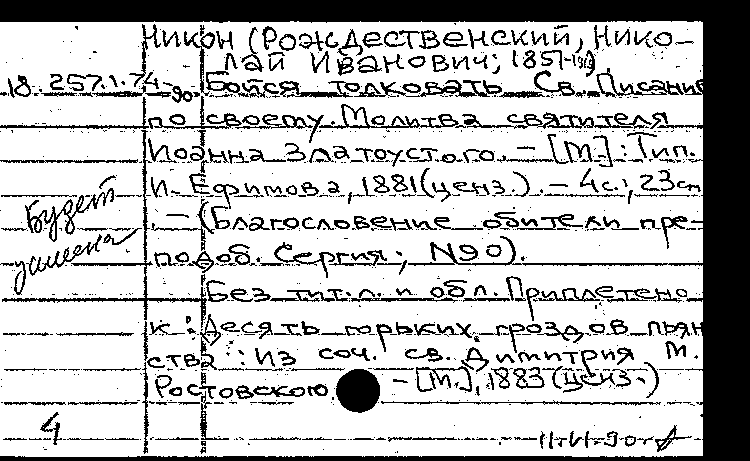 Никон (Рождественский, Нико-
лай Иванович; 1851-1918)
18.257.1.74-90 Бойся толковать Св. Писание
по своему. Молитва святителя
Иоанна Златоустого. - [М.] : Тип.
И. Ефимова, 1881 (ценз.). - 4 с.; 23 см
. - (Благословение обители пре-
подоб. Сергия; N90).
Будет
Без тит. л. и обл. Приплетено
к: Десять горьких гроздов пьян
ства: Из соч. св. Димитрия М.
Ростовского. - [М.], 1883 (ценз.)
4